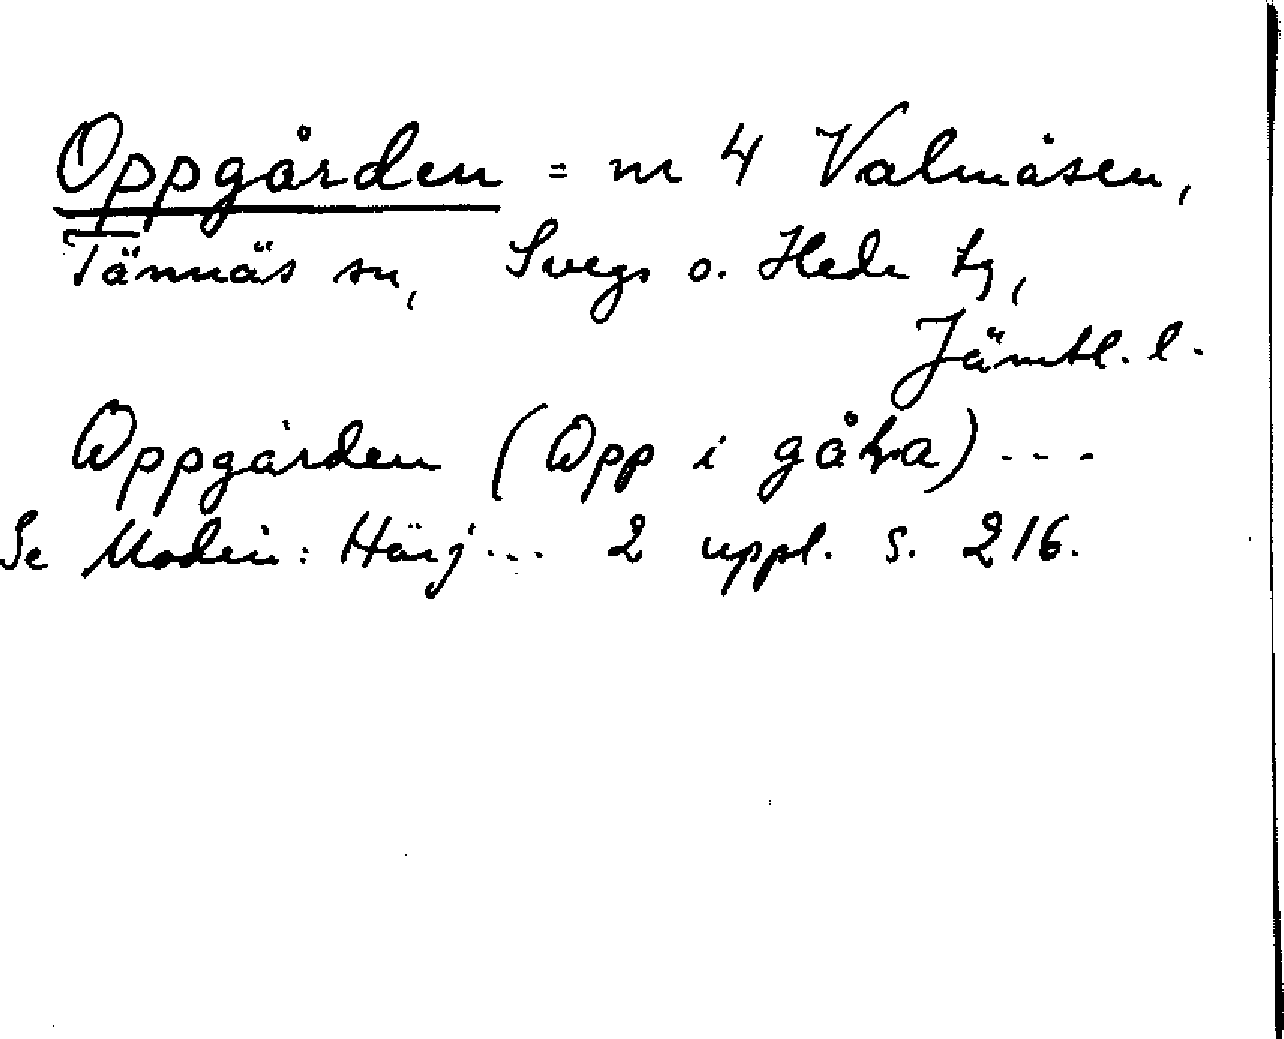 Oppgården = nr 4 Valmåsen,
Tännäs sn, Svegs o. Hede tg,
Jämtl. l.
Oppgården (Opp i gåƕa) ---
Se Modin: Härj... 2 uppl. s. 216.